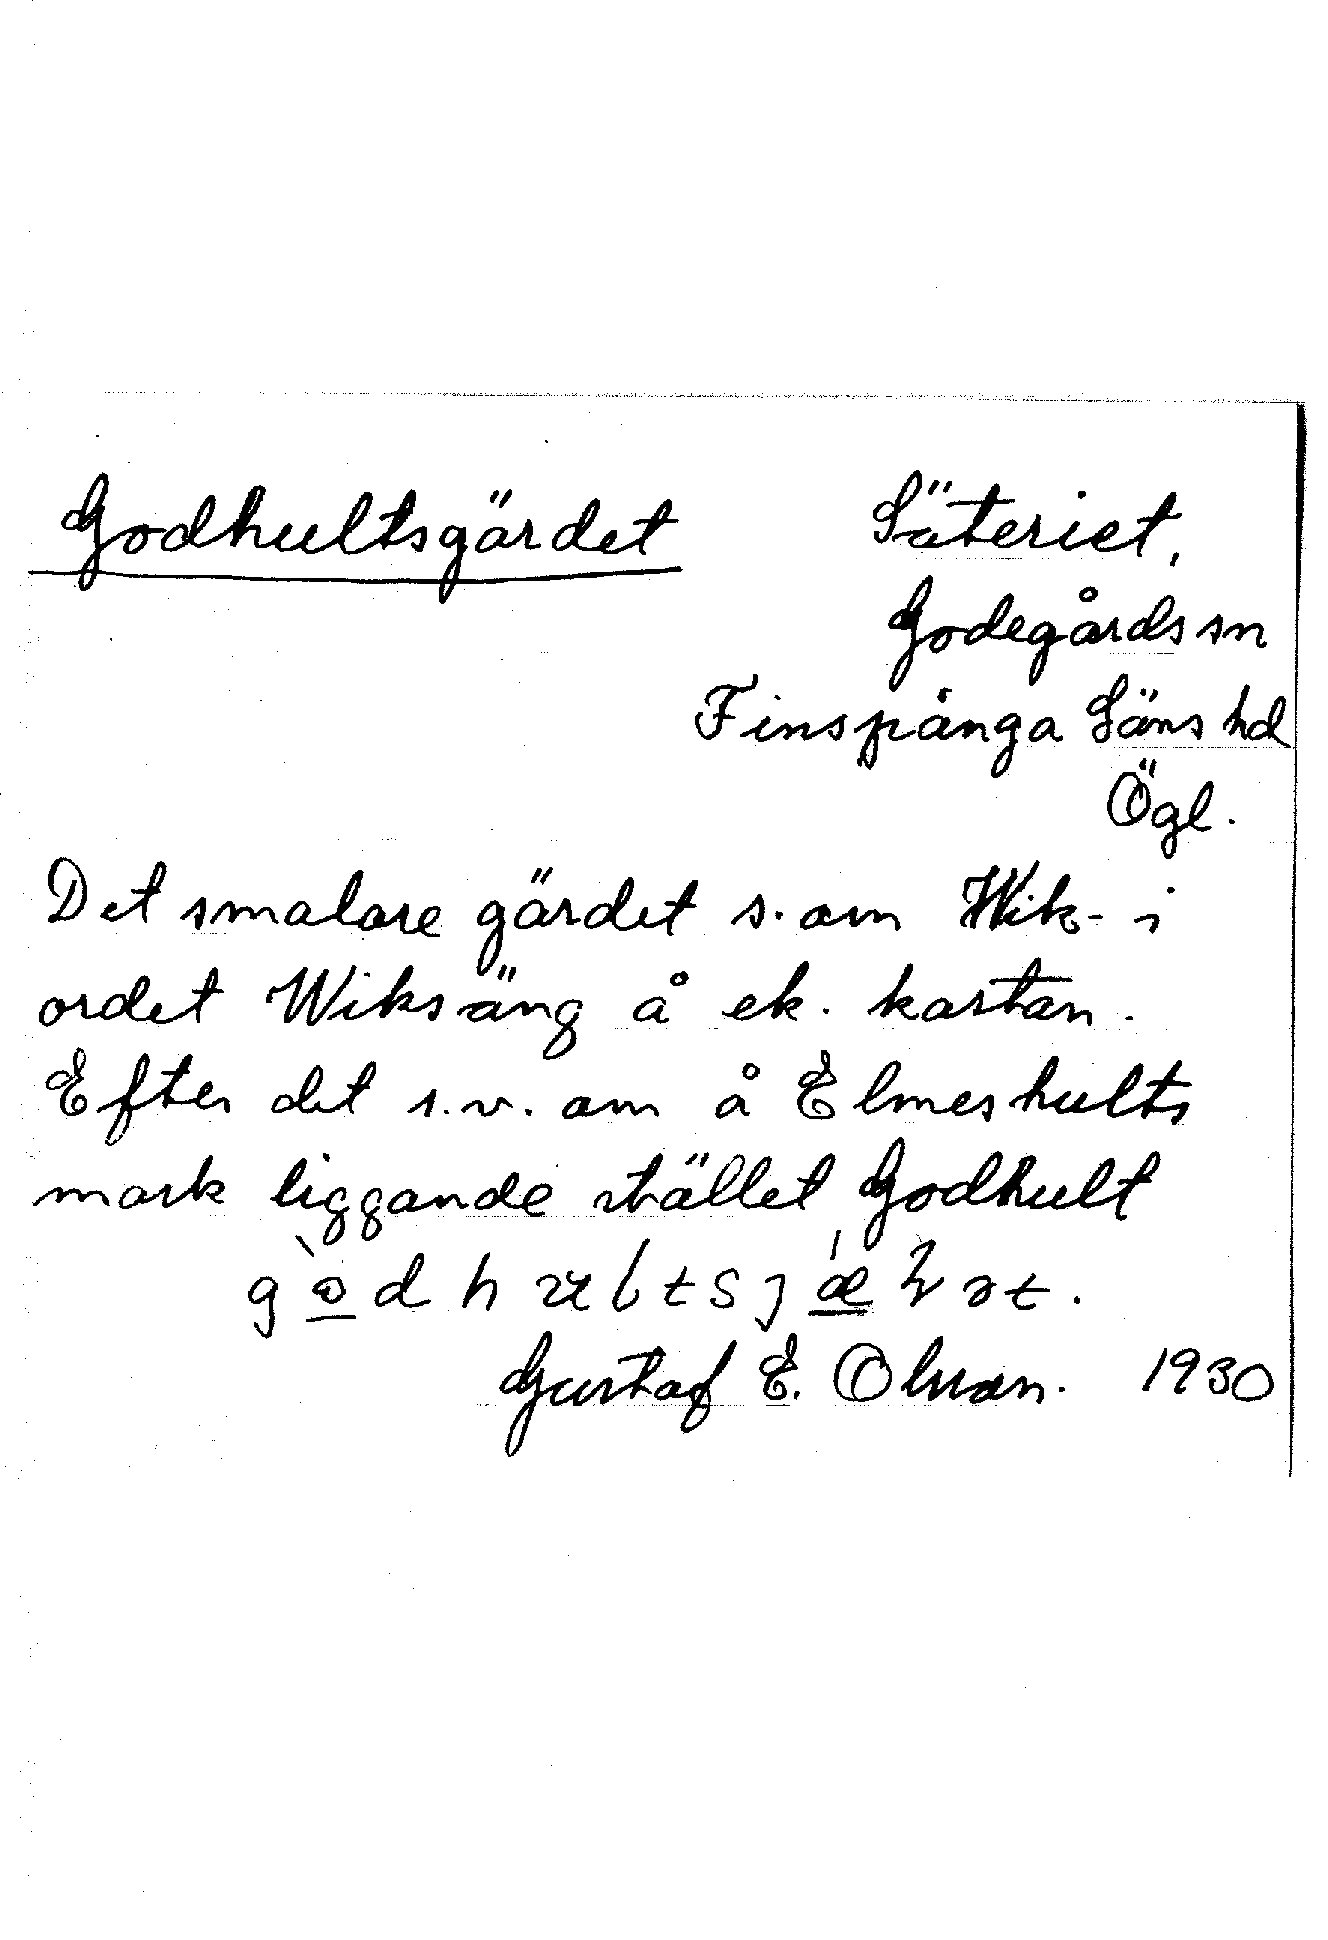 Godhultsgärdet
Säteriet,
Godegårds sn
Finspånga Läns hd
Ögl.
Det smalare gärdet s. om Wik- i
ordet Wiksäng å ek. kartan.
Efter det s.v. om å Elmeshults
mark liggande stället Godhult
Gustaf E. Olsson. 1930